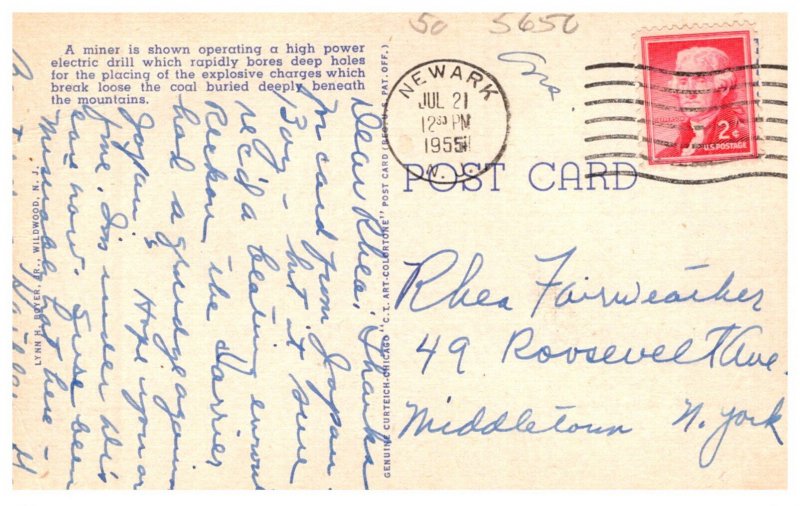 A miner is shown operating a high power
electric drill which rapidly bores deep holes
for the placing of the explosive charges which
break loose the coal buried deeply beneath
the mountains.
50 5650
NEWARK
JUL 21
12 30 PM
1955
N. J.
2¢
U.S. POSTAGE
POST CARD
Rhea Fairweather
49 Roosevelt Ave.
Middletown N. York
GENUINE CURTEICH-CHICAGO "C.T. ART-COLORTONE" POST CARD (REG. U.S. PAT. OFF.)
LYNN H. BOYER, JR., WILDWOOD, N. J.
Dear Rhea: Thanks
for card from Jopan
Boy - but it sure
rec'd a beating enrout
Reckon the carrier
had a grudge again
Jopan! Hope you are
fine. I'm under dr's
care now. Sure been
miserable hot here -